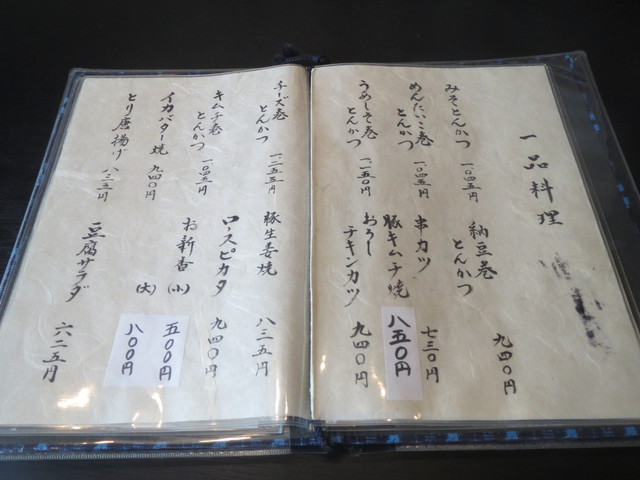 一品料理
みそとんかつ 一、〇四五円
納豆巻とんかつ 九四〇円
めんたいこ巻とんかつ 一、〇四五円
串カツ 七三〇円
うめしそ巻とんかつ 一、一五〇円
豚キムチ焼 八五〇円
おろしチキンカツ 九四〇円
チーズ巻とんかつ 一、二五五円
豚生姜焼 八三五円
キムチ巻とんかつ 一、〇四五円
ロースピカタ 九四〇円
イカバター焼 九四〇円
お新香 (小) 五〇〇円
(大) 八〇〇円
とり唐揚げ 八三五円
豆腐サラダ 六二五円